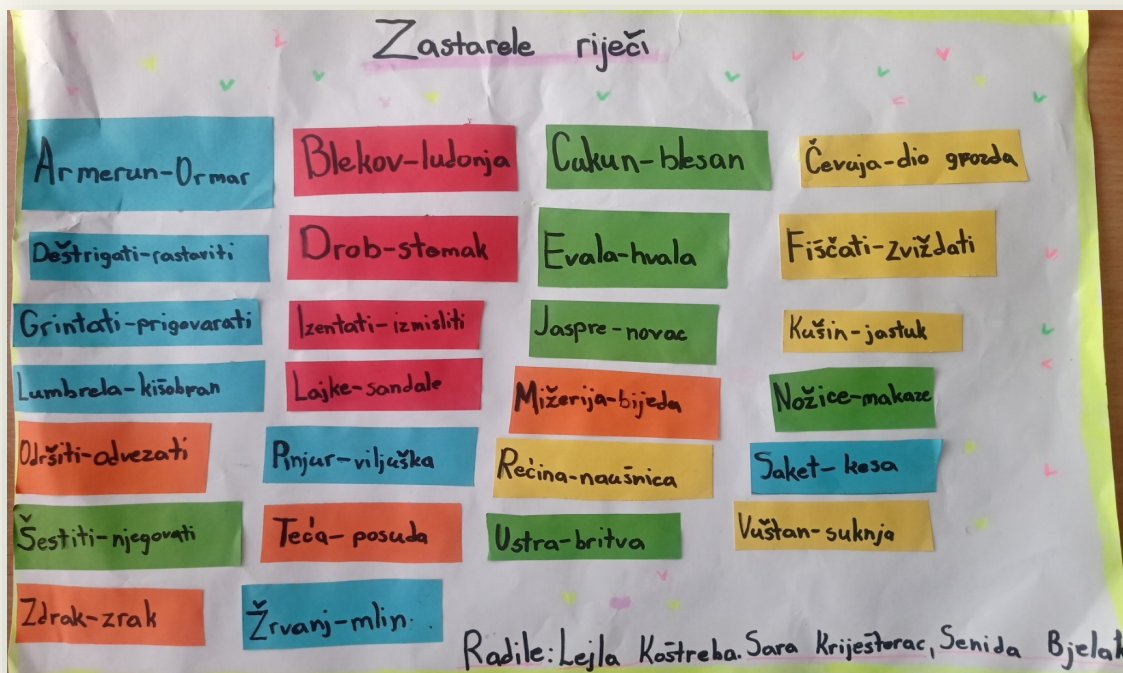 Zastarele riječi
Armerun-Ormar
Blekov-ludonja
Cukun-blesan
Čevuja-dio grozda
Deštrigati-rastaviti
Drob-stomak
Evala-hvala
Fiščati-zviždati
Grintati-prigovarati
Izentati-izmisliti
Jaspre-novac
Kušin-jastuk
Lumbrela-kišobran
Lajke-sandale
Mižerija-bijeda
Nožice-makaze
Odršiti-odvezati
Pinjur-viljuška
Rećina-naušnica
Saket-kesa
Šestiti-njegovati
Teća-posuda
Ustra-britva
Vuštan-suknja
Zdrak-zrak
Žrvanj-mlin.
Radile: Lejla Koštreba. Sara Kriještorac, Senida Bjelak